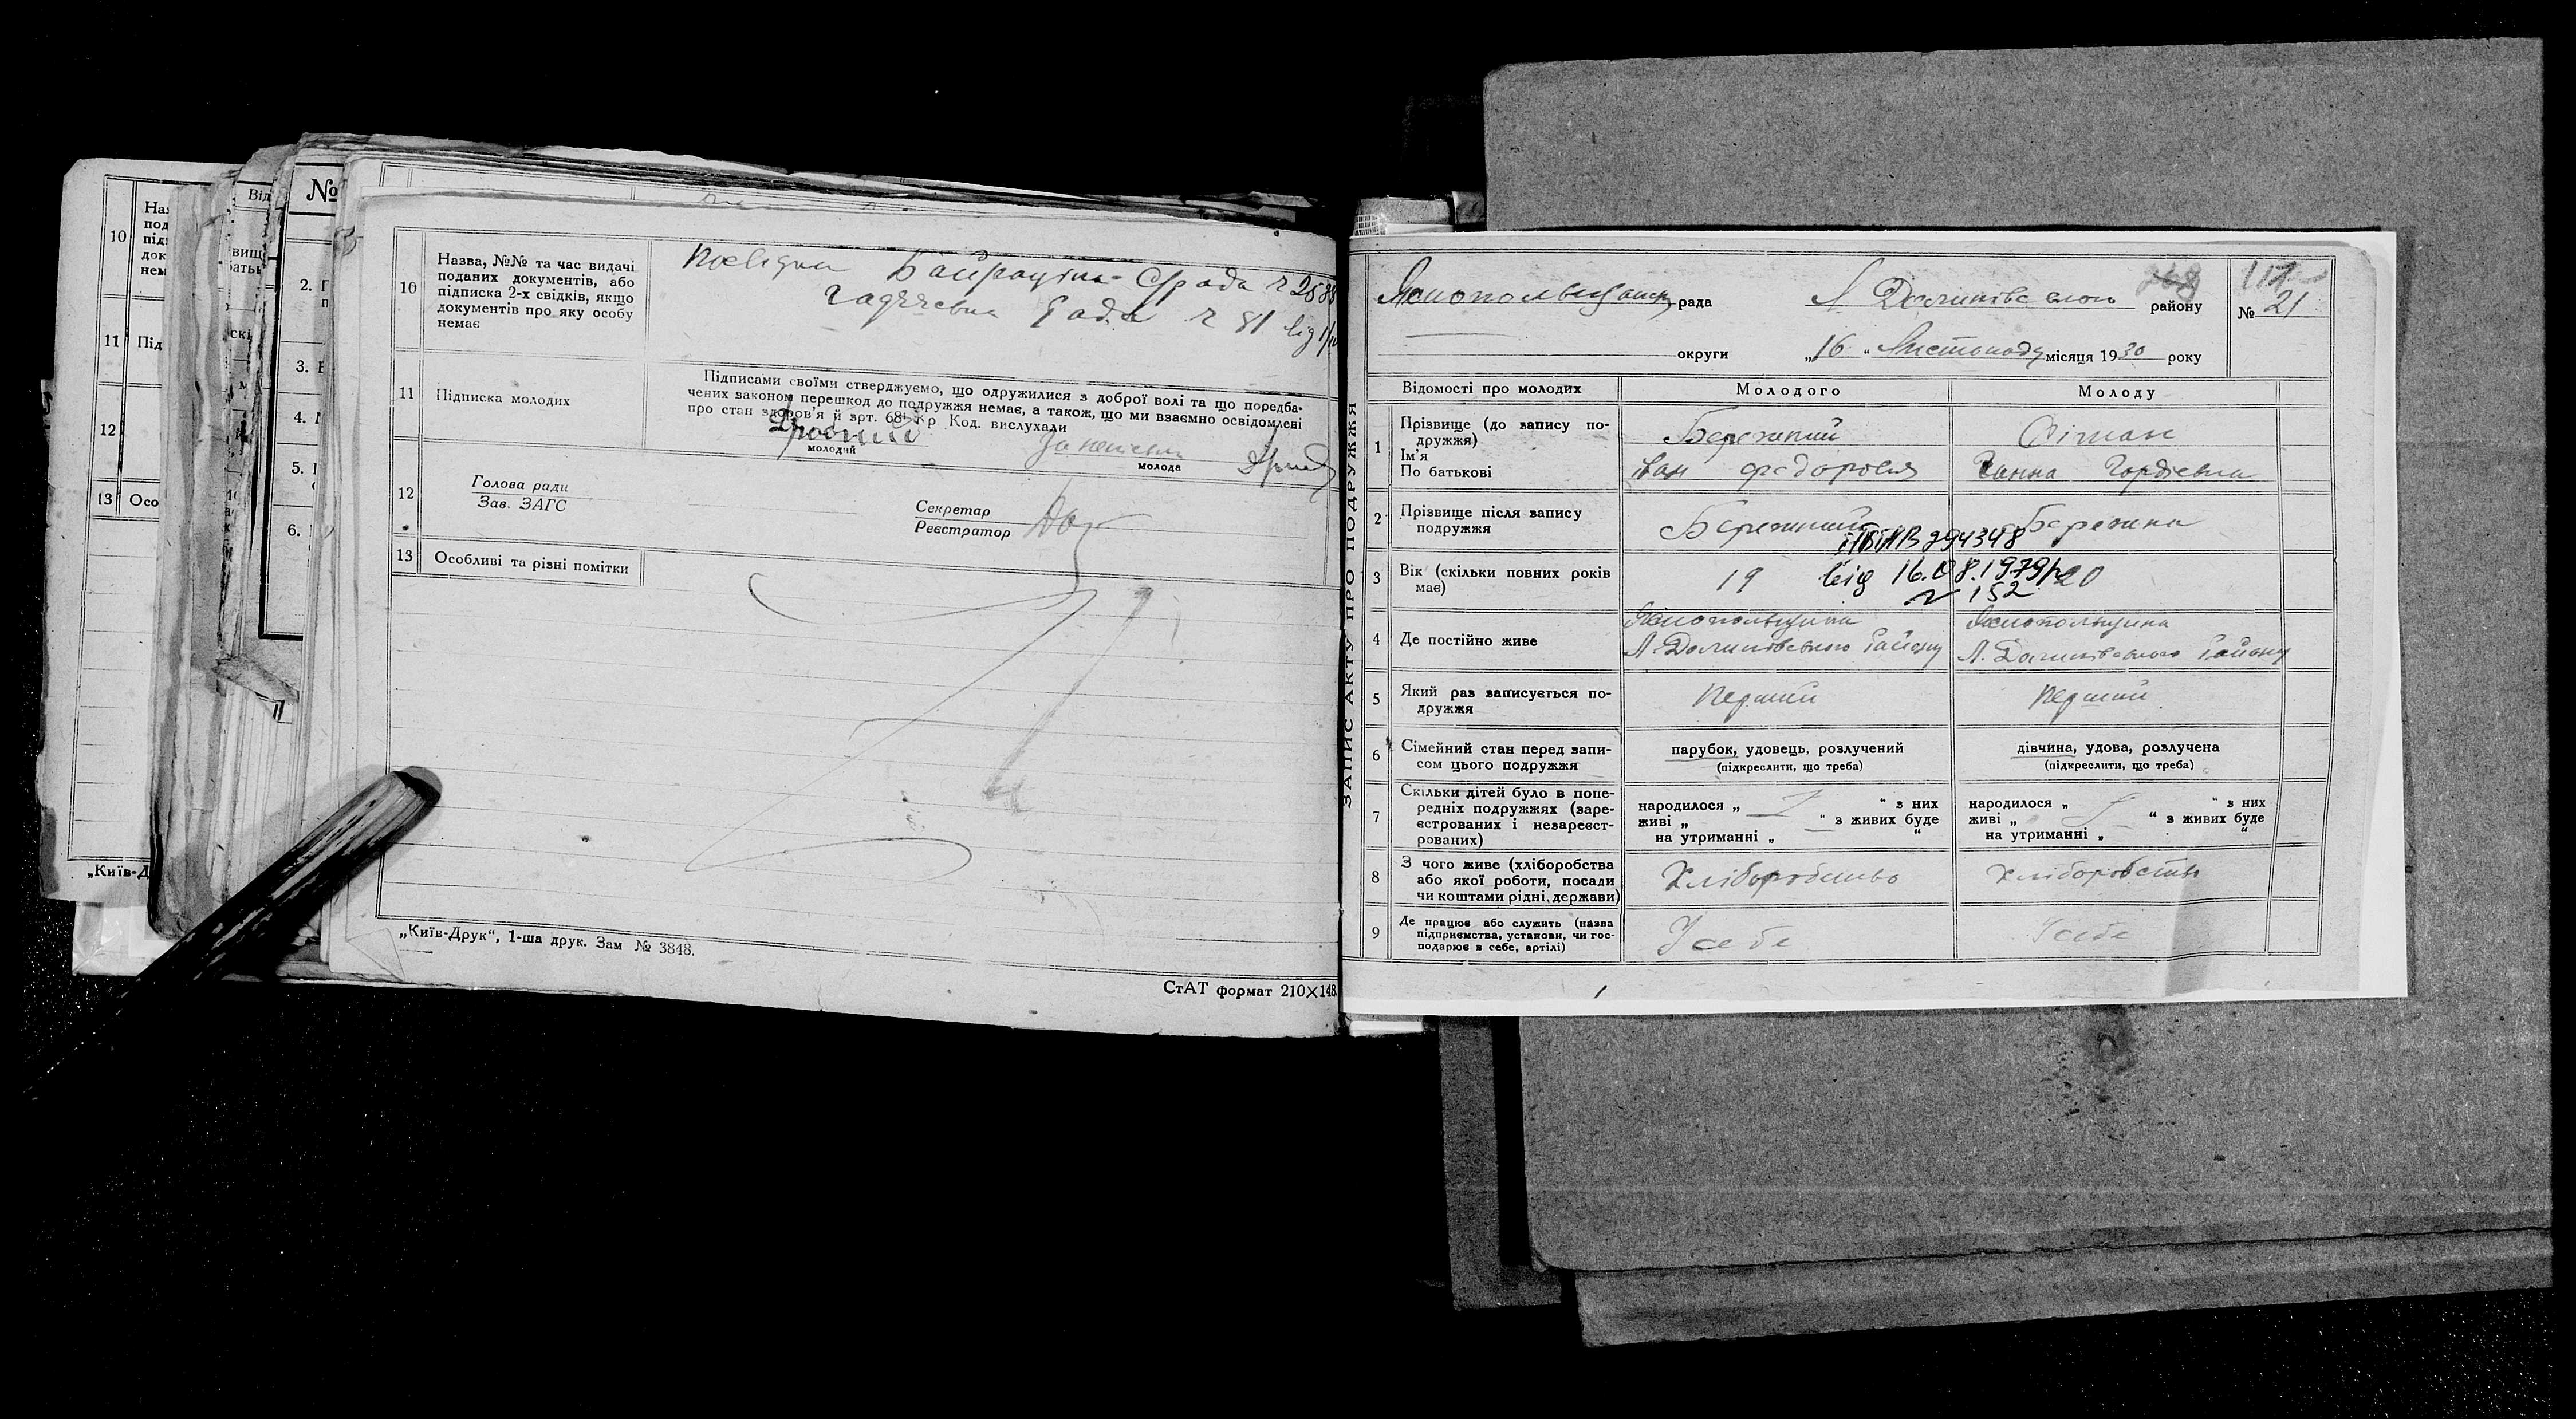 10
Назва, №№ та час видачі
поданих документів, або
підписка 2-х свідків, якщо
документів про яку особу
немає
рада
Рада № 81 від
11
Підписка молодих
Підписами своїми стверджуємо, що одружилися з доброї волі та що поредба-
чених законом перешкод до подружжя немає, а також, що ми взаємно освідомлені
про стан здоров'я й зрт. Кр Код. вислухали
молодий
молода
12
Голова ради
Зав. ЗАГС
Секретар
Реєстратор
13
Особливі та різні помітки
„Київ-Друк“, 1-ша друк. Зам № 3848.
СтАТ формат 210×148.
№
Від
10
11 Під
12
13 Осо
2.
3.
4.
5.
6.
„Київ-Д
ЗАПИС АКТУ ПРО ПОДРУЖЖЯ
рада
району
№ 21
округи
„16“ Листопада місяця 1930 року
Відомості про молодих
Молодого
Молоду
1
Прізвище (до запису по-
дружжя)
Ім'я
По батькові
Бережний
Іван Федорович
Ганна Гордієвна
2
Прізвище після запису
подружжя
Бережний
Бережна
294348
3
Вік (скільки повних років
має)
19
від 16.08.1979р
№ 152
20
4
Де постійно живе
Яснопольщина
Л. Долинівського Району
Яснопольщина
Л. Долинівського Району
5
Який раз записується по-
дружжя
Перший
Перший
6
Сімейний стан перед запи-
сом цього подружжя
парубок, удовець, розлучений
(підкреслити, що треба)
дівчина, удова, розлучена
(підкреслити, що треба)
7
Скільки дітей було в попе-
редніх подружжях (заре-
єстрованих і незареєст-
рованих)
народилося „ “ з них
живі „ “ з живих буде
на утриманні „ “
народилося „ “ з них
живі „ “ з живих буде
на утриманні „ “
8
З чого живе (хліборобства
або якої роботи, посади
чи коштами рідні, держави)
Хліборобство
Хліборобство
9
Де працює або служить (назва
підприємства, установи, чи гос-
подарює в себе, артілі)
У себе
У себе